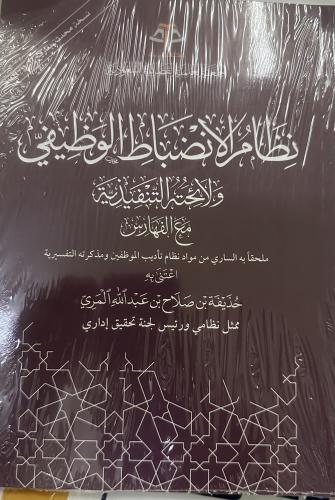 نظام الانضباط الوظيفي
ولائحته التنفيذية
مع الفهارس
ملحقاً به الساري من مواد نظام تأديب الموظفين ومذكرته التفسيرية
اعتنى به
حذيفة بن صلاح بن عبدالله المري
ممثل نظامي ورئيس لجنة تحقيق إداري